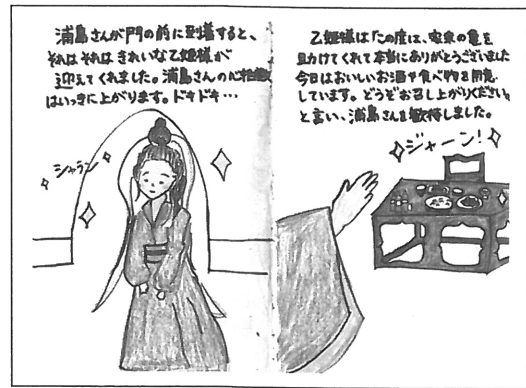 浦島さんが門の前に到着すると、
それはそれはきれいな乙姫様が
迎えてくれました。浦島さんの心拍数
はいっきに上がります。ドキドキ…
シャラン
乙姫様は「この度は、家来の亀を
助けてくれて本当にありがとうございました
今日はおいしいお酒や食べ物を用意
しています。どうぞお召し上がりください。
と言い、浦島さんを歓待しました。
ジャーン!